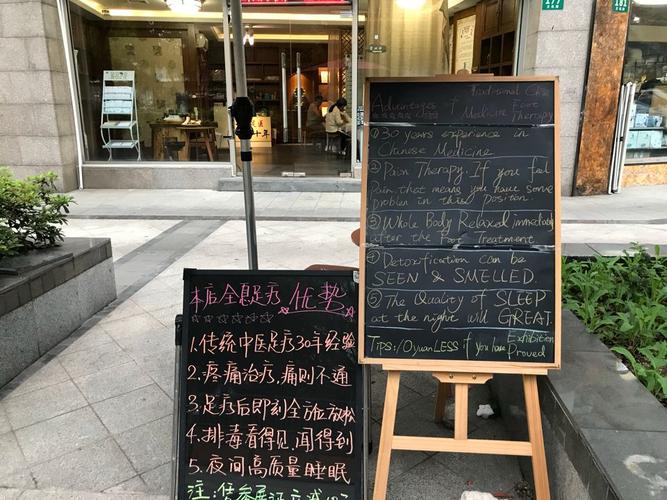 177
181
Traditional Chi
Advantages of Medicine Foot
Therapy
①30 years experience in
Chinese Medicine
②Pain Therapy. If you feel
Pain, that means you have some
problem in this position.
③Whole Body Relaxed immediately
after the Foot Treatment
④Detoxification can be
SEEN & SMELLED.
⑤The Quality of SLEEP
at the night will GREAT.
Tips: 10yuan LESS if you have Exhibition
Proved
本店全息足疗优势
1.传统中医足疗30年经验
2.疼痛治疗,痛则不通
3.足疗后即刻全方位放松
4.排毒看得见,闻得到
5.夜间高质量睡眠
注:凭参展证立减10元